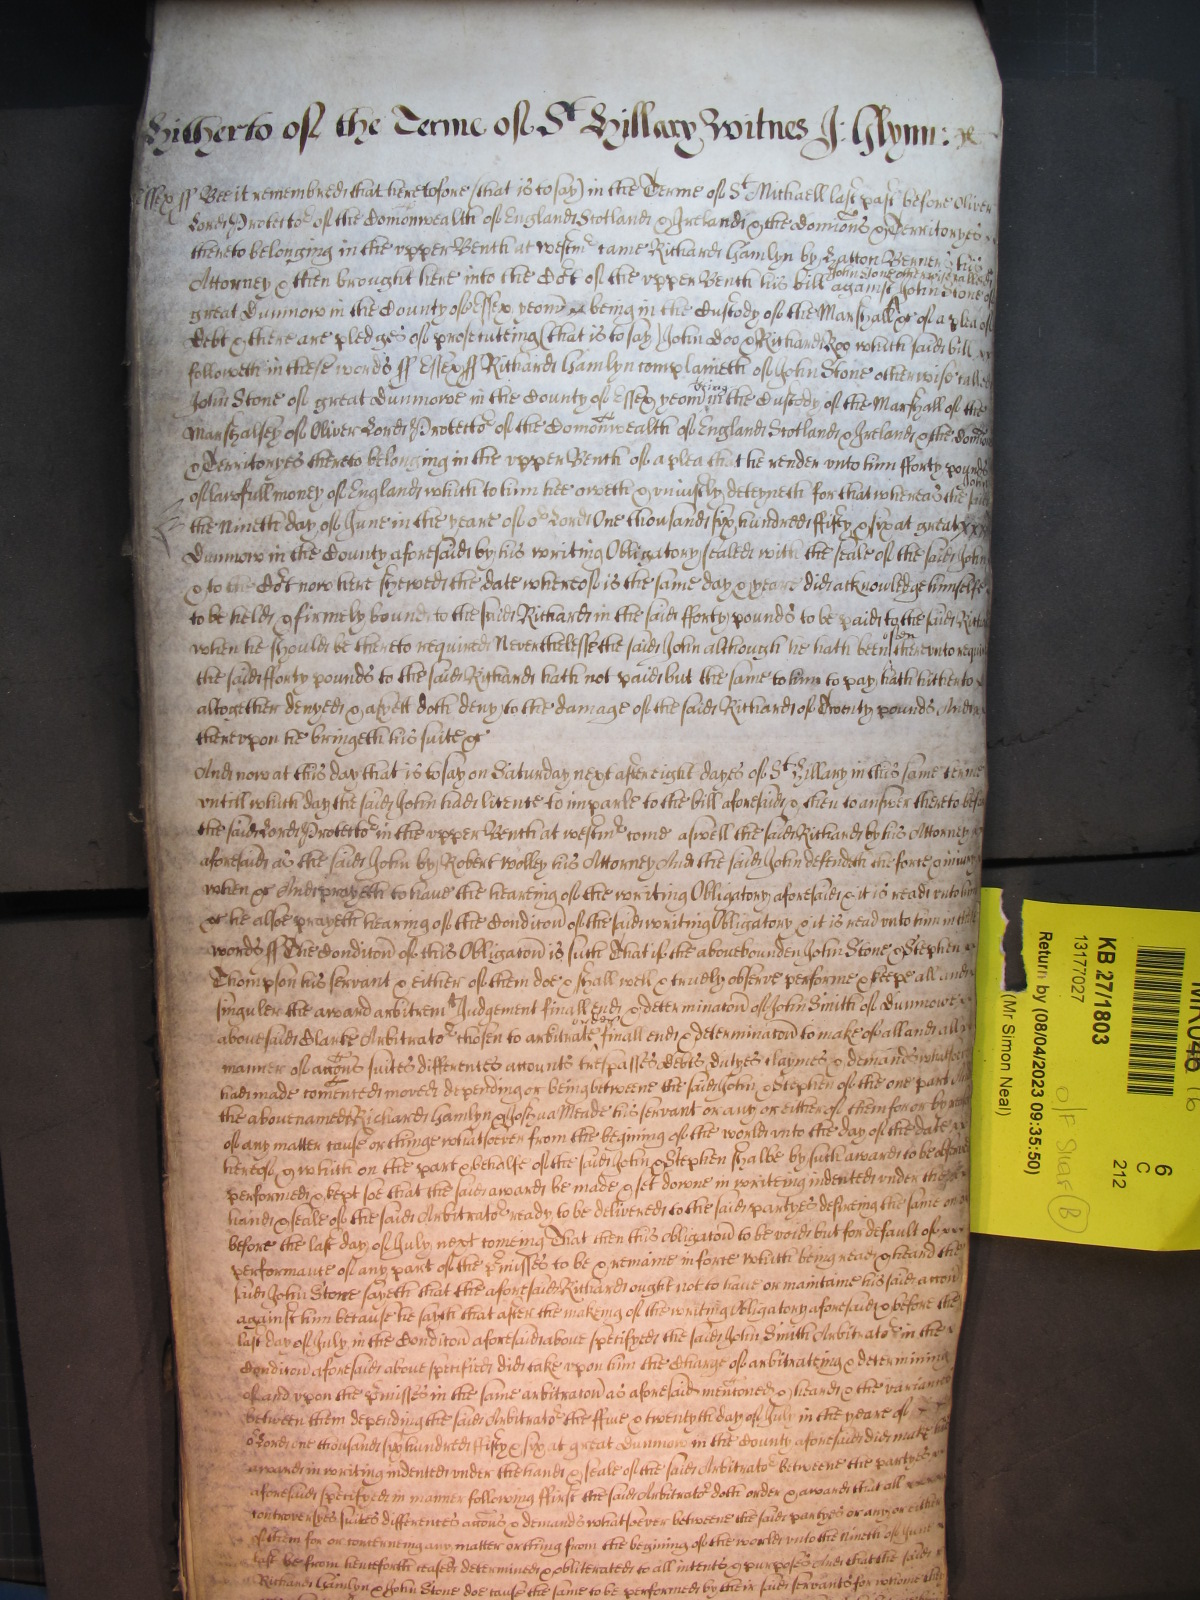 Hitherto of the Terme of St Hillary Witnes J: Glynn:
Essex ss Bee it remembred that heretofore (that is to say) in the Terme of St Michaell last past before Oliver
Lord Protector of the Comonwealth of England Scotland & Ireland & the dominions & Territoryes
thereto belonging in the upper Bench at westmr came Richard Hamlyn by Berners his
John Stone otherwise called
Attorney & then brought here into the Cort of the upper Bench his bill against John Stone of
great Dunmow in the County of Essex yeoman being in the Custody of the Marshall &c of a plea of
debt & there are pledges of prosecuteing (that is to say) John Doo & Richard Roo which said bill
followeth in these words ss Essex ss Richard Hamlyn complaineth of John Stone otherwise called
John Stone of great Dunmowe in the County of Essex yeom being in the Custody of the Marshall of the
Marshalsey of Oliver Lord Protector of the Comonwealth of England Scotland & Ireland & the domi
& Territoryes thereto belonging in the upper Bench of a plea that he render unto him fforty pounds
of lawfull money of England which to him hee oweth & uniustly deteyneth for that whereas the said John
the Nineth day of June in the yeare of or Lord One thousand six hundred fifty & six at great
Dunmow in the County aforesaid by his writing Obligatory sealed with the seale of the said John
& to the Cort now here shewed the date whereof is the same day & yeare did acknowledge himselfe
to be held & firmely bound to the said Richard in the said fforty pounds to be paid to the said Rich
when he should be thereto required Neverthelesse the said John although he hath been often thereunto requi
the said fforty pounds to the said Richard hath not paid but the same to him to pay hath hitherto
altogether denyed & as yett doth deny to the damage of the said Richard of Twenty pounds And
thereupon he bringeth his suite &c
And now at this day that is to say on Saturday next after eight dayes of St Hillary in this same terme
untill which day the said John had licence to imparle to the bill aforesaid & then to answer thereto before
the said Lord Protector in the upper Bench at westmr come aswell the said Richard by his Attorney
aforesaid as the said John by Robert Wolley his Attorney And the said John defendeth the force & iniury
when &c And prayeth to have the heareing of the writing Obligatory aforesaid & it is read unto him
&c he alsoe prayeth hearing of the Conditon of the said writing Obligatory & it is read unto him in these
words ss The Conditon of this Obligaton is such That if the abovebounden John Stone & Stephen
Thompson his servant & either of them doe & shall well & truely observe performe & keepe all and
singuler the award arbitremt Judgement finall end & determinaton of John Smith of Dunmowe
abovesaid Clarke Arbitrator chosen to arbitrate finall end & determinaton to make of all and all
manner of accons suites differences accounts trespasses debts dutyes claymes & demands whatsoever
had made comenced moved depending or being betweene the said John & Stephen of the one part And
the abovenamed Richard Hamlyn & Joshua Meade his servant or any or either of them for or by reason
of any matter cause or thinge whatsoever from the begining of the world unto the day of the date
hereof & which on the part & behalfe of the said John & Stephen shalbe by such award to be observed
performed & kept soe that the said award be made & set downe in writeing indented under the
hand & seale of the said Arbitrator ready to be delivered to the said partyes desireing the same on or
before the last day of July next comeing That then this obligaton to be void but for default of
performance of any part of the pmisses to be & remaine in force Which being read & heard the
said John Stone sayeth that the aforesaid Richard ought not to have or maintaine his said accon
against him because he saith that after the making of the writing Obligatory aforesaid & before the
last day of July in the Conditon aforesaid above specifyed the said John Smith Arbitrator in the
Conditon aforesaid above specified did take upon him the Charge of arbitrateing & determining
of and upon the pmisses in the same arbitraton as aforesaid mentoned & heard & the variances
between them depending the said Arbitrator the ffive & twentyth day of July in the yeare of
or Lord one thousand six hundred fifty & six at great Dunmow in the County aforesaid did make his
award in writing indented under the hand & seale of the said Arbitrator betweene the partyes
aforesaid specifyed in manner following ffirst the said Arbitrator doth order & award that all
controversyes suites differences accons & demands whatsoever betweene the said partyes or any or either
of them for or concerneing any matter or thing from the begining of the world unto the Nineth of June
last be from henceforth ceased determined & obliterated to all intents & purposes And that the said
Richard Hamlyn & John Stone doe cause the same to be performed by their said servants for whome the
6
C
212
KB 27/1803
13177027
Return by (08/04/2023 09:35:50)
(Mr Simon Neal)
B